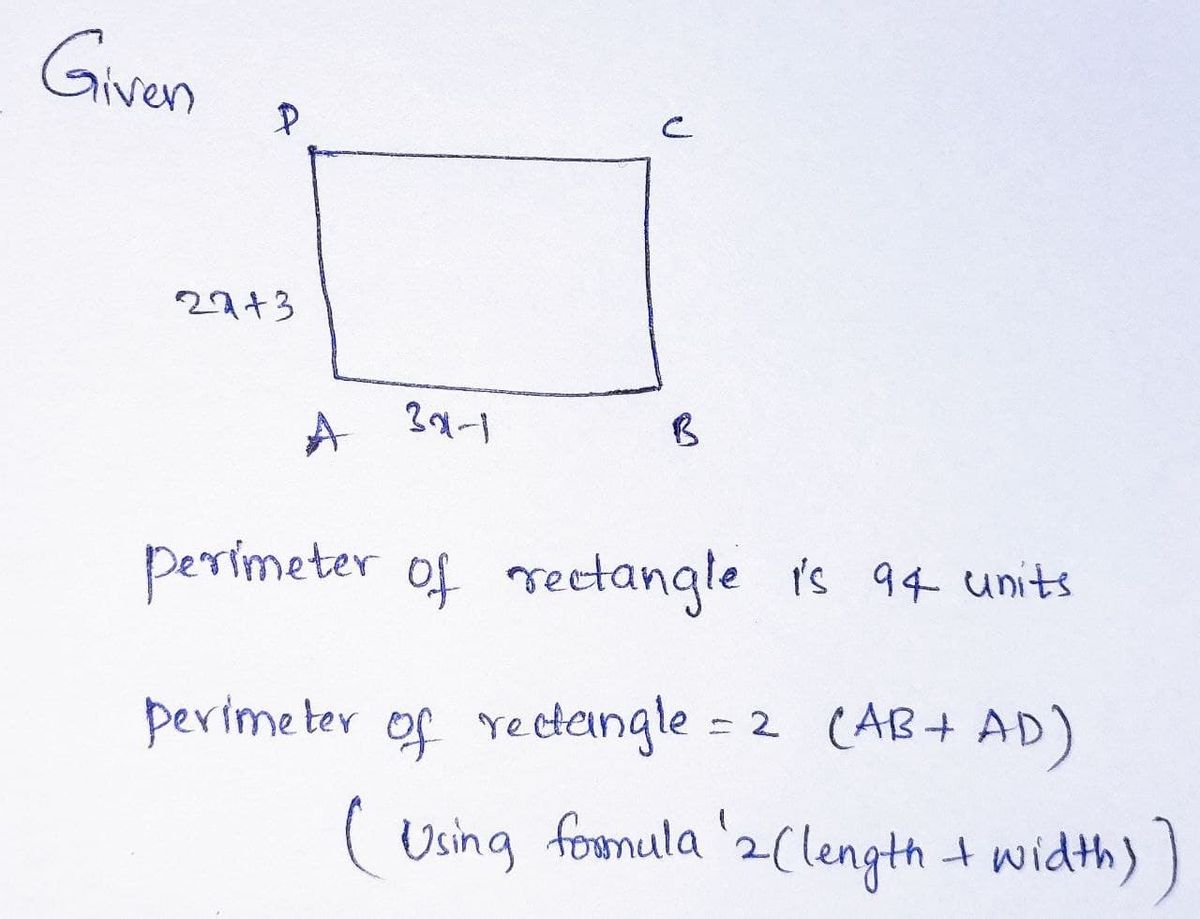 Given
D
C
2x+3
A 3x-1 B
perimeter of rectangle is 94 units
perimeter of rectangle = 2 (AB + AD)
( Using formula '2(length + width) )